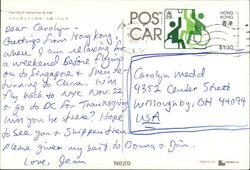 POST
CAR
HONG KONG
$1.30
Dear Carolyn -
Greetings from Hong Kong
where I am relaxing for
a weekend before flying
on to Singapore & then
returning to China. Will
fly back to NYC Nov. 22
& go to DC for Thanksgiving
Will you be there? Hope
to see you & Skip then
Please give my best to Donna & Jim.
Love, Jean
Carolyn Medd
4352 Center Street
Willoughby, OH 44094
USA
N829